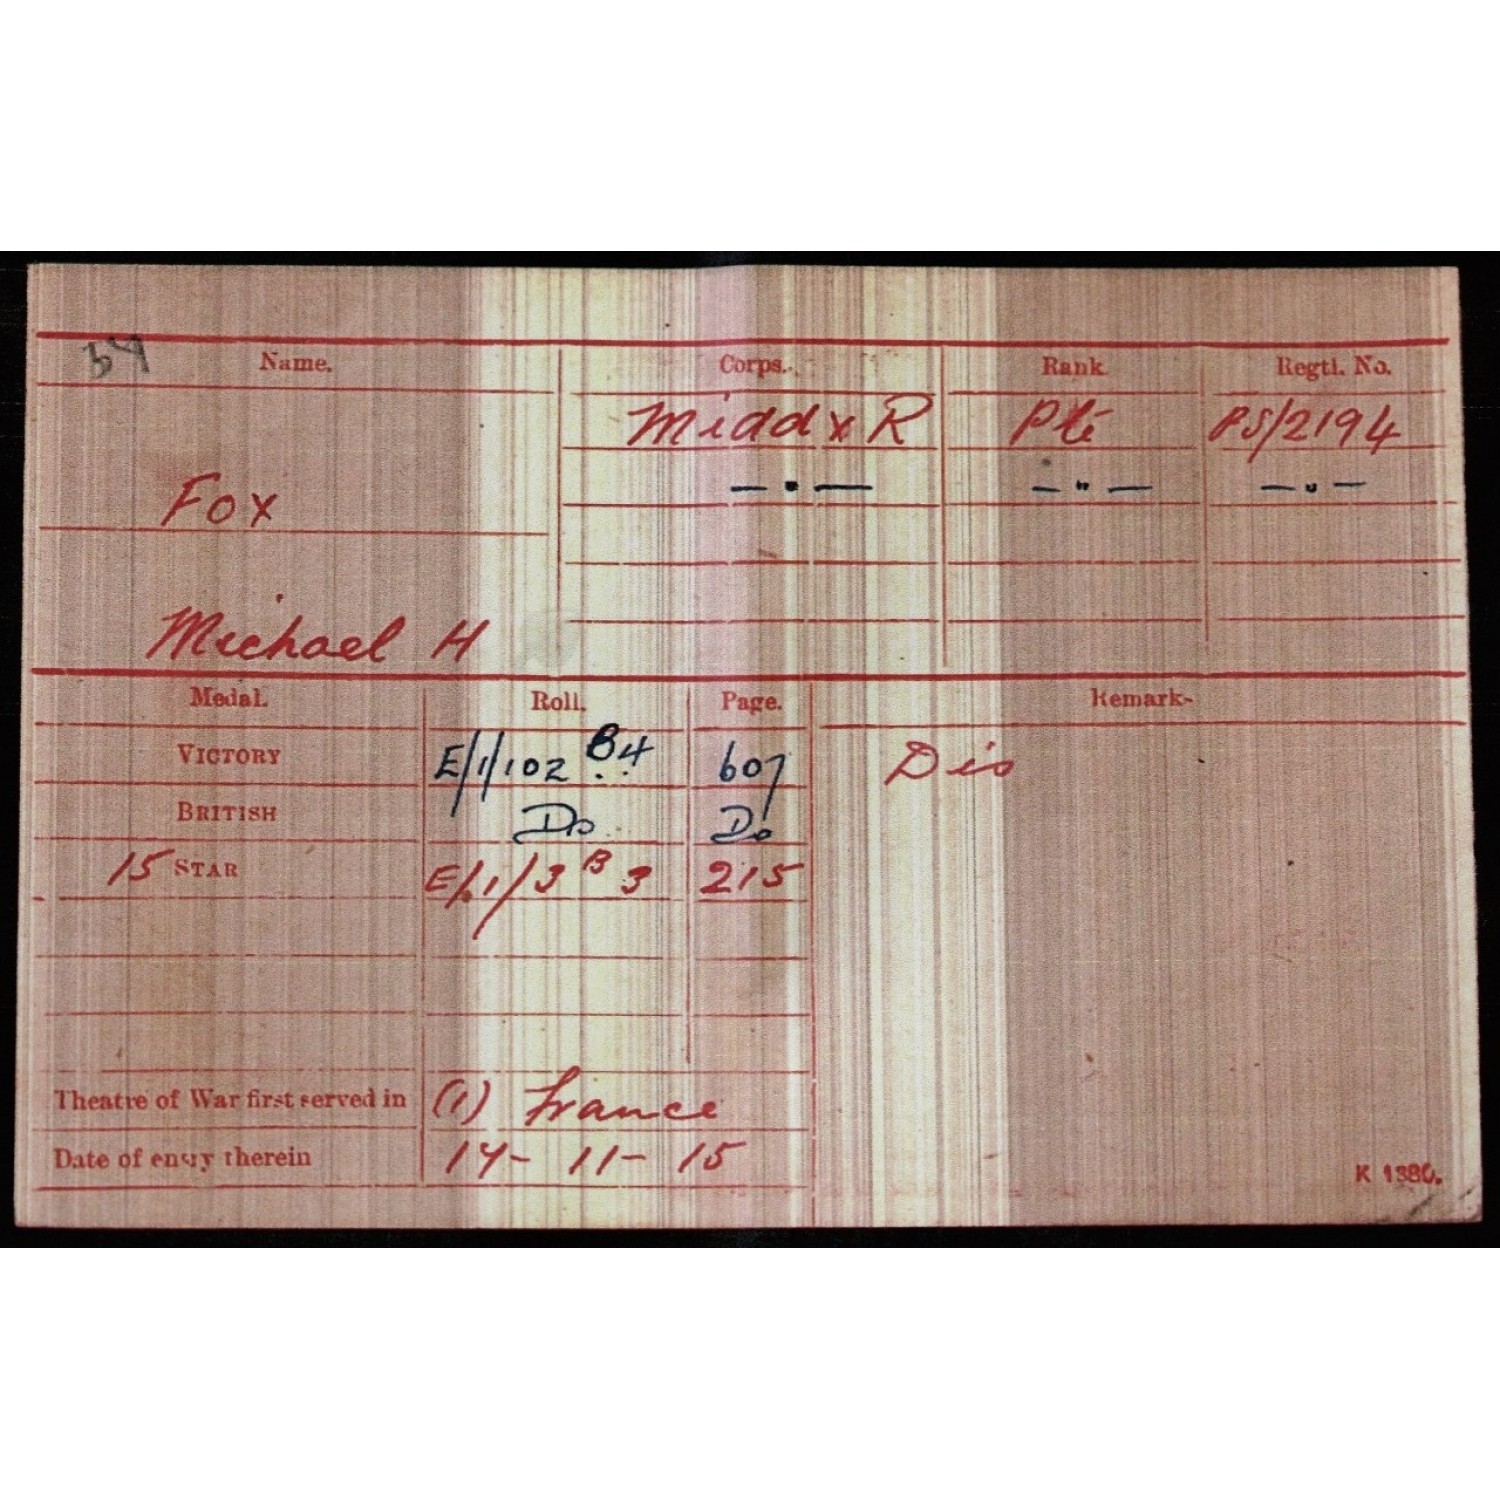 Name. Corps. Rank Regtl. No.
Middx R Pte PS/2194
Fox — " — — " — — " —
Michael H
Medal. Roll. Page. Remarks
VICTORY E/1/102 B4 607 Dis
BRITISH Do Do
15 STAR E/1/3 B 3 215
Theatre of War first served in (1) France
Date of entry therein 14 - 11 - 15
K 1380.